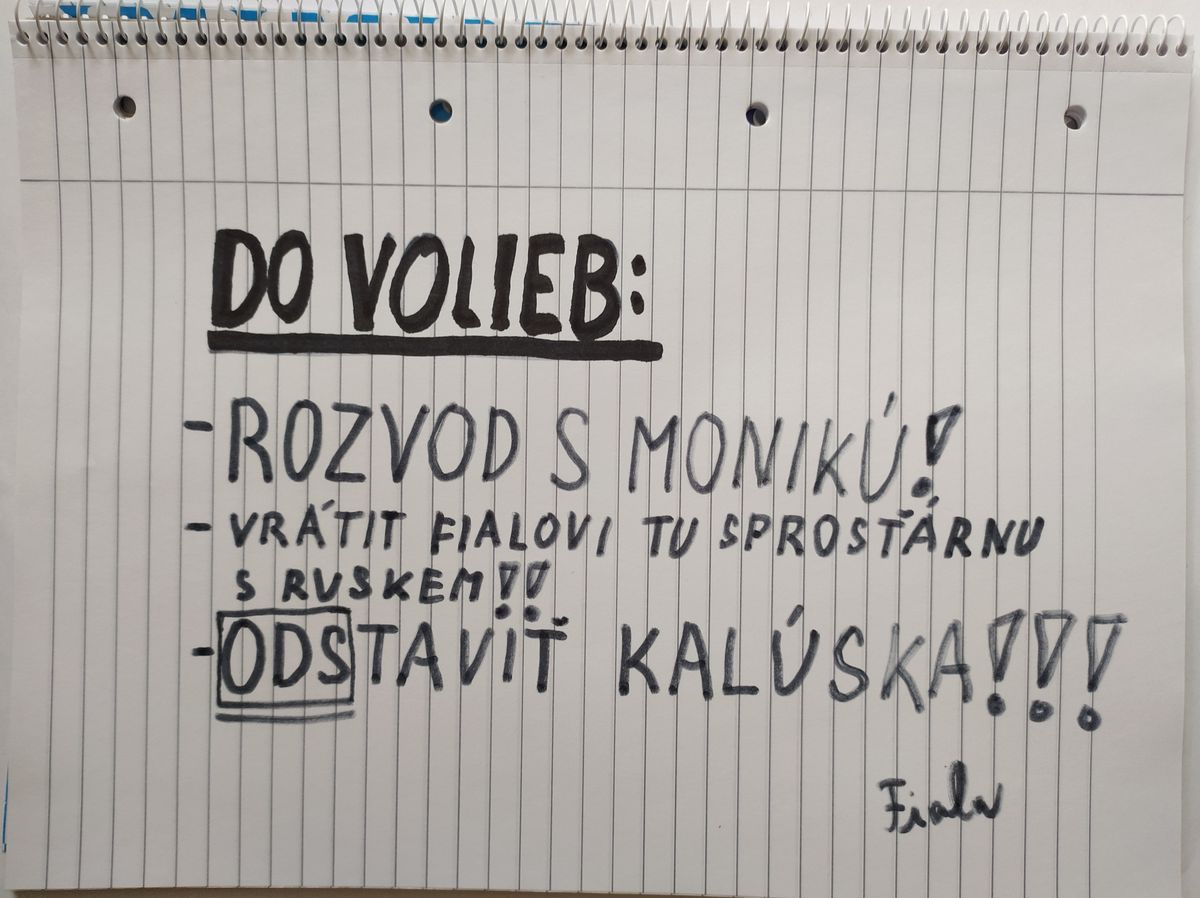 DO VOLIEB:
- ROZVOD S MONIKÚ!
- VRÁTIT FIALOVI TU SPROSŤÁRNU
S RUSKEM!!
- ODSTAVIŤ KALÚSKA!!!
Fiala